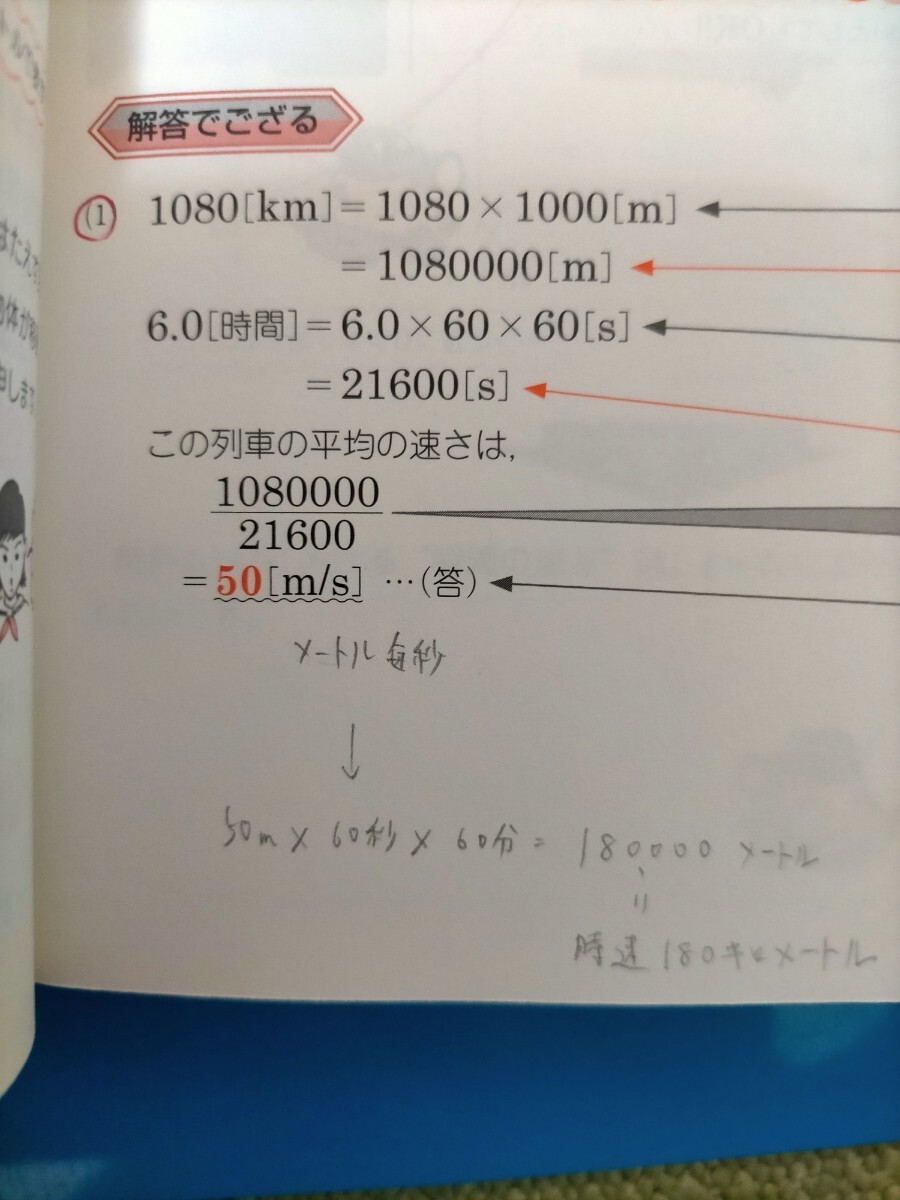 解答でござる
(1) 1080[km]=1080×1000[m]
=1080000[m]
6.0[時間]=6.0×60×60[s]
=21600[s]
この列車の平均の速さは,
1080000
21600
=50[m/s] …(答)
メートル毎秒
↓
50m×60秒×60分=180000メートル
〃
時速180キロメートル